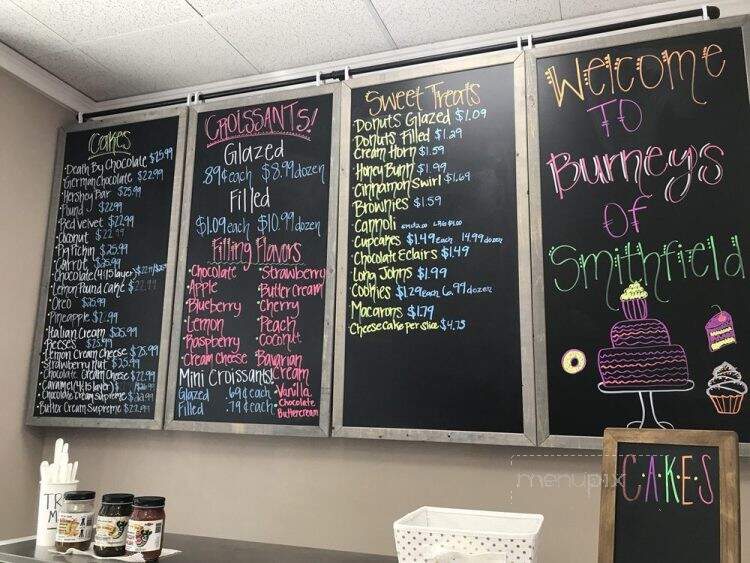 Cakes
• Death By Chocolate $25.99
• German Chocolate $22.99
• Hershey Bar $25.99
• Pound $22.99
• Red Velvet $22.99
• Coconut $22.99
• Pig Pickin $25.99
• Carrot $25.99
• Chocolate (4:15 layer)
• Lemon Pound Cake $22.99
• Oreo $25.99
• Pineapple
• Italian Cream $25.99
• Reese's $25.99
• Lemon Cream Cheese $25.99
• Strawberry Nut $25.99
• Chocolate Cream Cheese $22.99
• Caramel (4:15 layer)
• Chocolate Cream Supreme $22.99
• Butter Cream Supreme $22.99
CROISSANTS!
Glazed
.89¢ each $8.99 dozen
Filled
$1.09 each $10.99 dozen
Filling Flavors
• Chocolate
• Apple
• Blueberry
• Lemon
• Raspberry
• Cream Cheese
• Strawberry
• Butter Cream
• Cherry
• Peach
• Coconut
• Bavarian
Cream
• Vanilla
• Chocolate
Buttercream
Mini Croissants!
Glazed .69¢ each
Filled .79¢ each
Sweet Treats
• Donuts Glazed $1.09
• Donuts Filled $1.29
• Cream Horn $1.59
• Honey Bunn $1.99
• Cinnamon Swirl $1.69
• Brownies $1.59
• Cannoli
• Cupcakes $1.49 each 14.99 dozen
• Chocolate Eclairs $1.49
• Long Johns $1.99
• Cookies $1.29 each 6.99 dozen
• Macarons $1.79
• Cheese Cake per slice $4.75
Welcome
TO
Burney's
of
Smithfield
CAKES
menupix